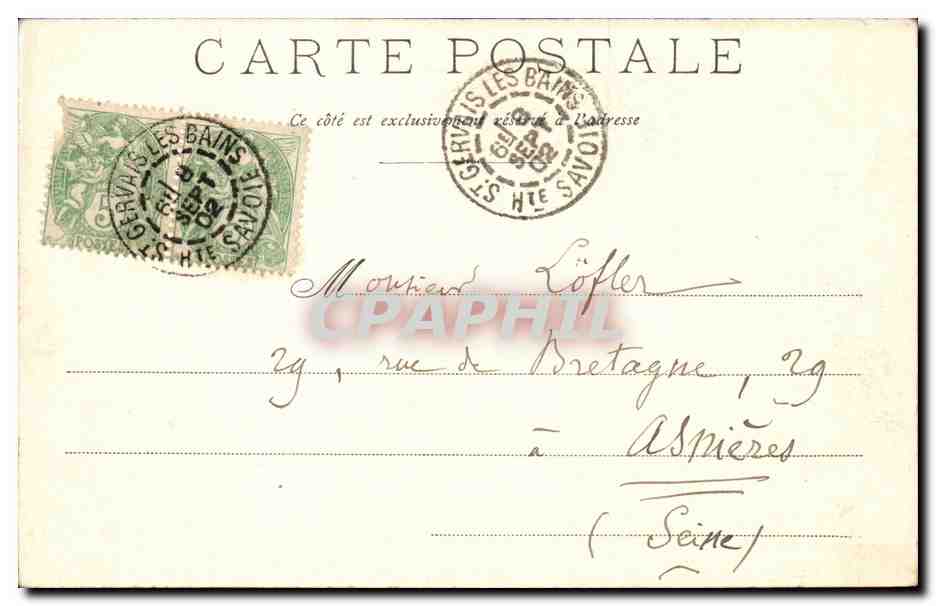 CARTE POSTALE
Ce côté est exclusivement réservé à l'adresse
ST. GERVAIS LES BAINS
SEPT
02
HTE SAVOIE
ST. GERVAIS LES BAINS
SEPT
02
HTE SAVOIE
5
POSTES
Monsieur Löfler
CPAPHIL
29, rue de Bretagne, 29
à Asnières
(Seine)